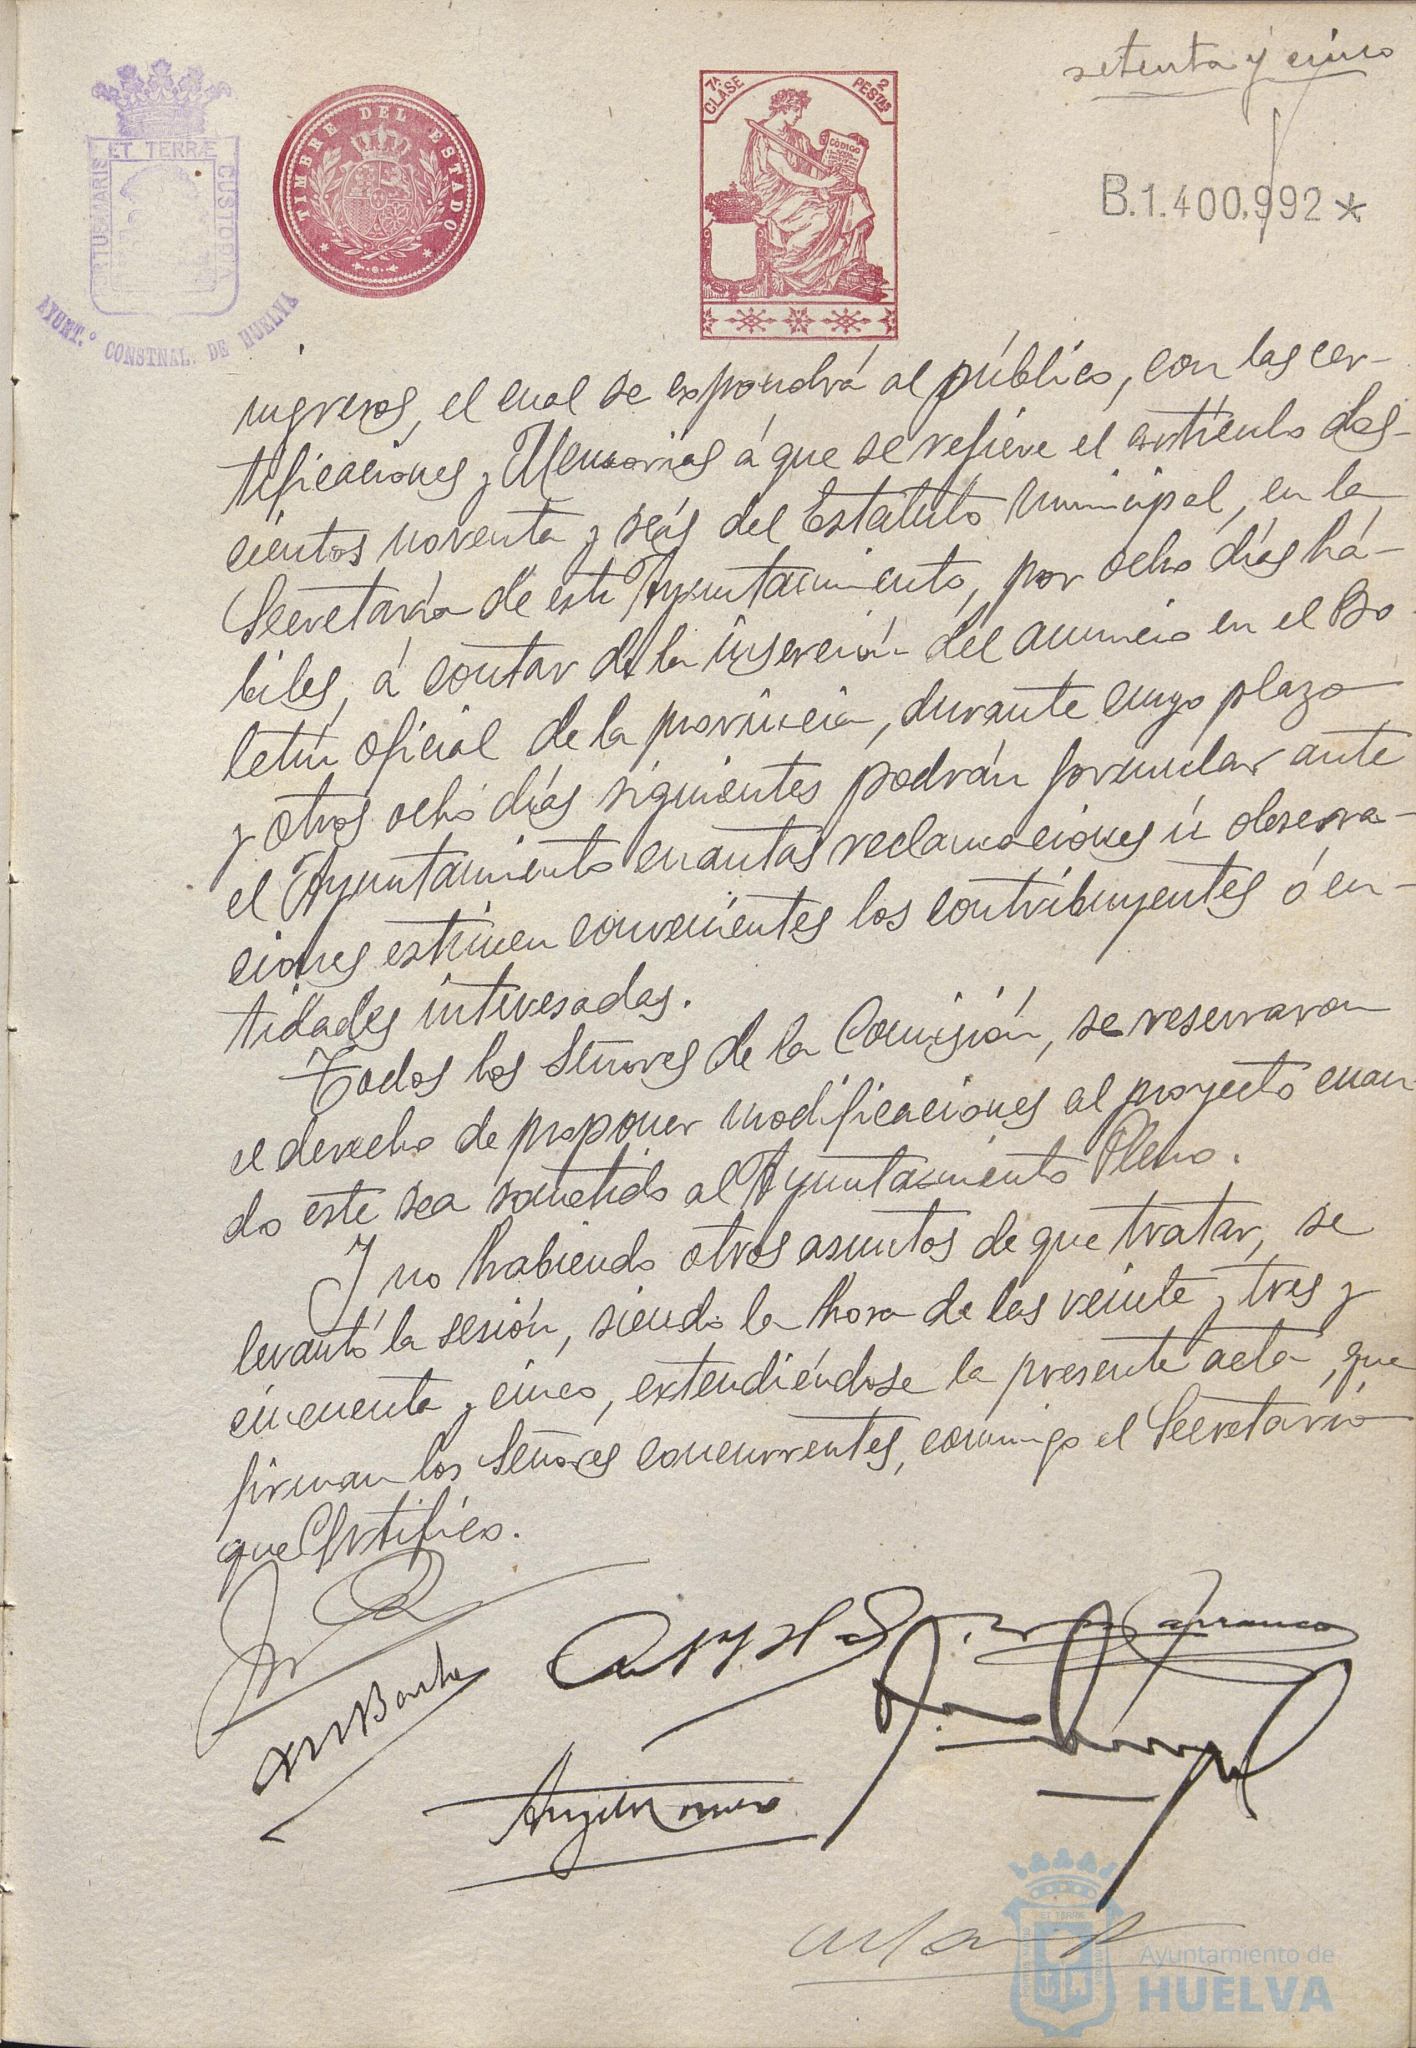 setenta y cinco
7ª CLASE
2 PESTAS
CÓDIGO
TIMBRE DEL ESTADO
PORTUS MARIS ET TERRÆ CUSTODIA
AYUNT.º CONSTNAL. DE HUELVA
B.1.400.992*
ingresos, el cual se expondrá al público, con las cer-
tificaciones y Memorias á que se refiere el artículo dos-
cientos noventa y seis del Estatuto Municipal, en la
Secretaría de este Ayuntamiento, por ocho días há-
biles, á contar de la inserción del anuncio en el Bo-
letín oficial de la provincia, durante cuyo plazo
y otros ocho días siguientes podrán formular ante
el Ayuntamiento cuantas reclamaciones ú observa-
ciones estimen convenientes los contribuyentes ó en-
tidades interesadas.
Todos los Señores de la Comisión, se reservaron
el derecho de proponer modificaciones al proyecto cuan-
do este sea sometido al Ayuntamiento Pleno.
Y no habiendo otros asuntos de que tratar, se
levantó la sesión, siendo la hora de las veinte y tres y
cincuenta y cinco, extendiéndose la presente acta, que
firman los Señores concurrentes, conmigo el Secretario
que Certifico.
Ayuntamiento de
HUELVA